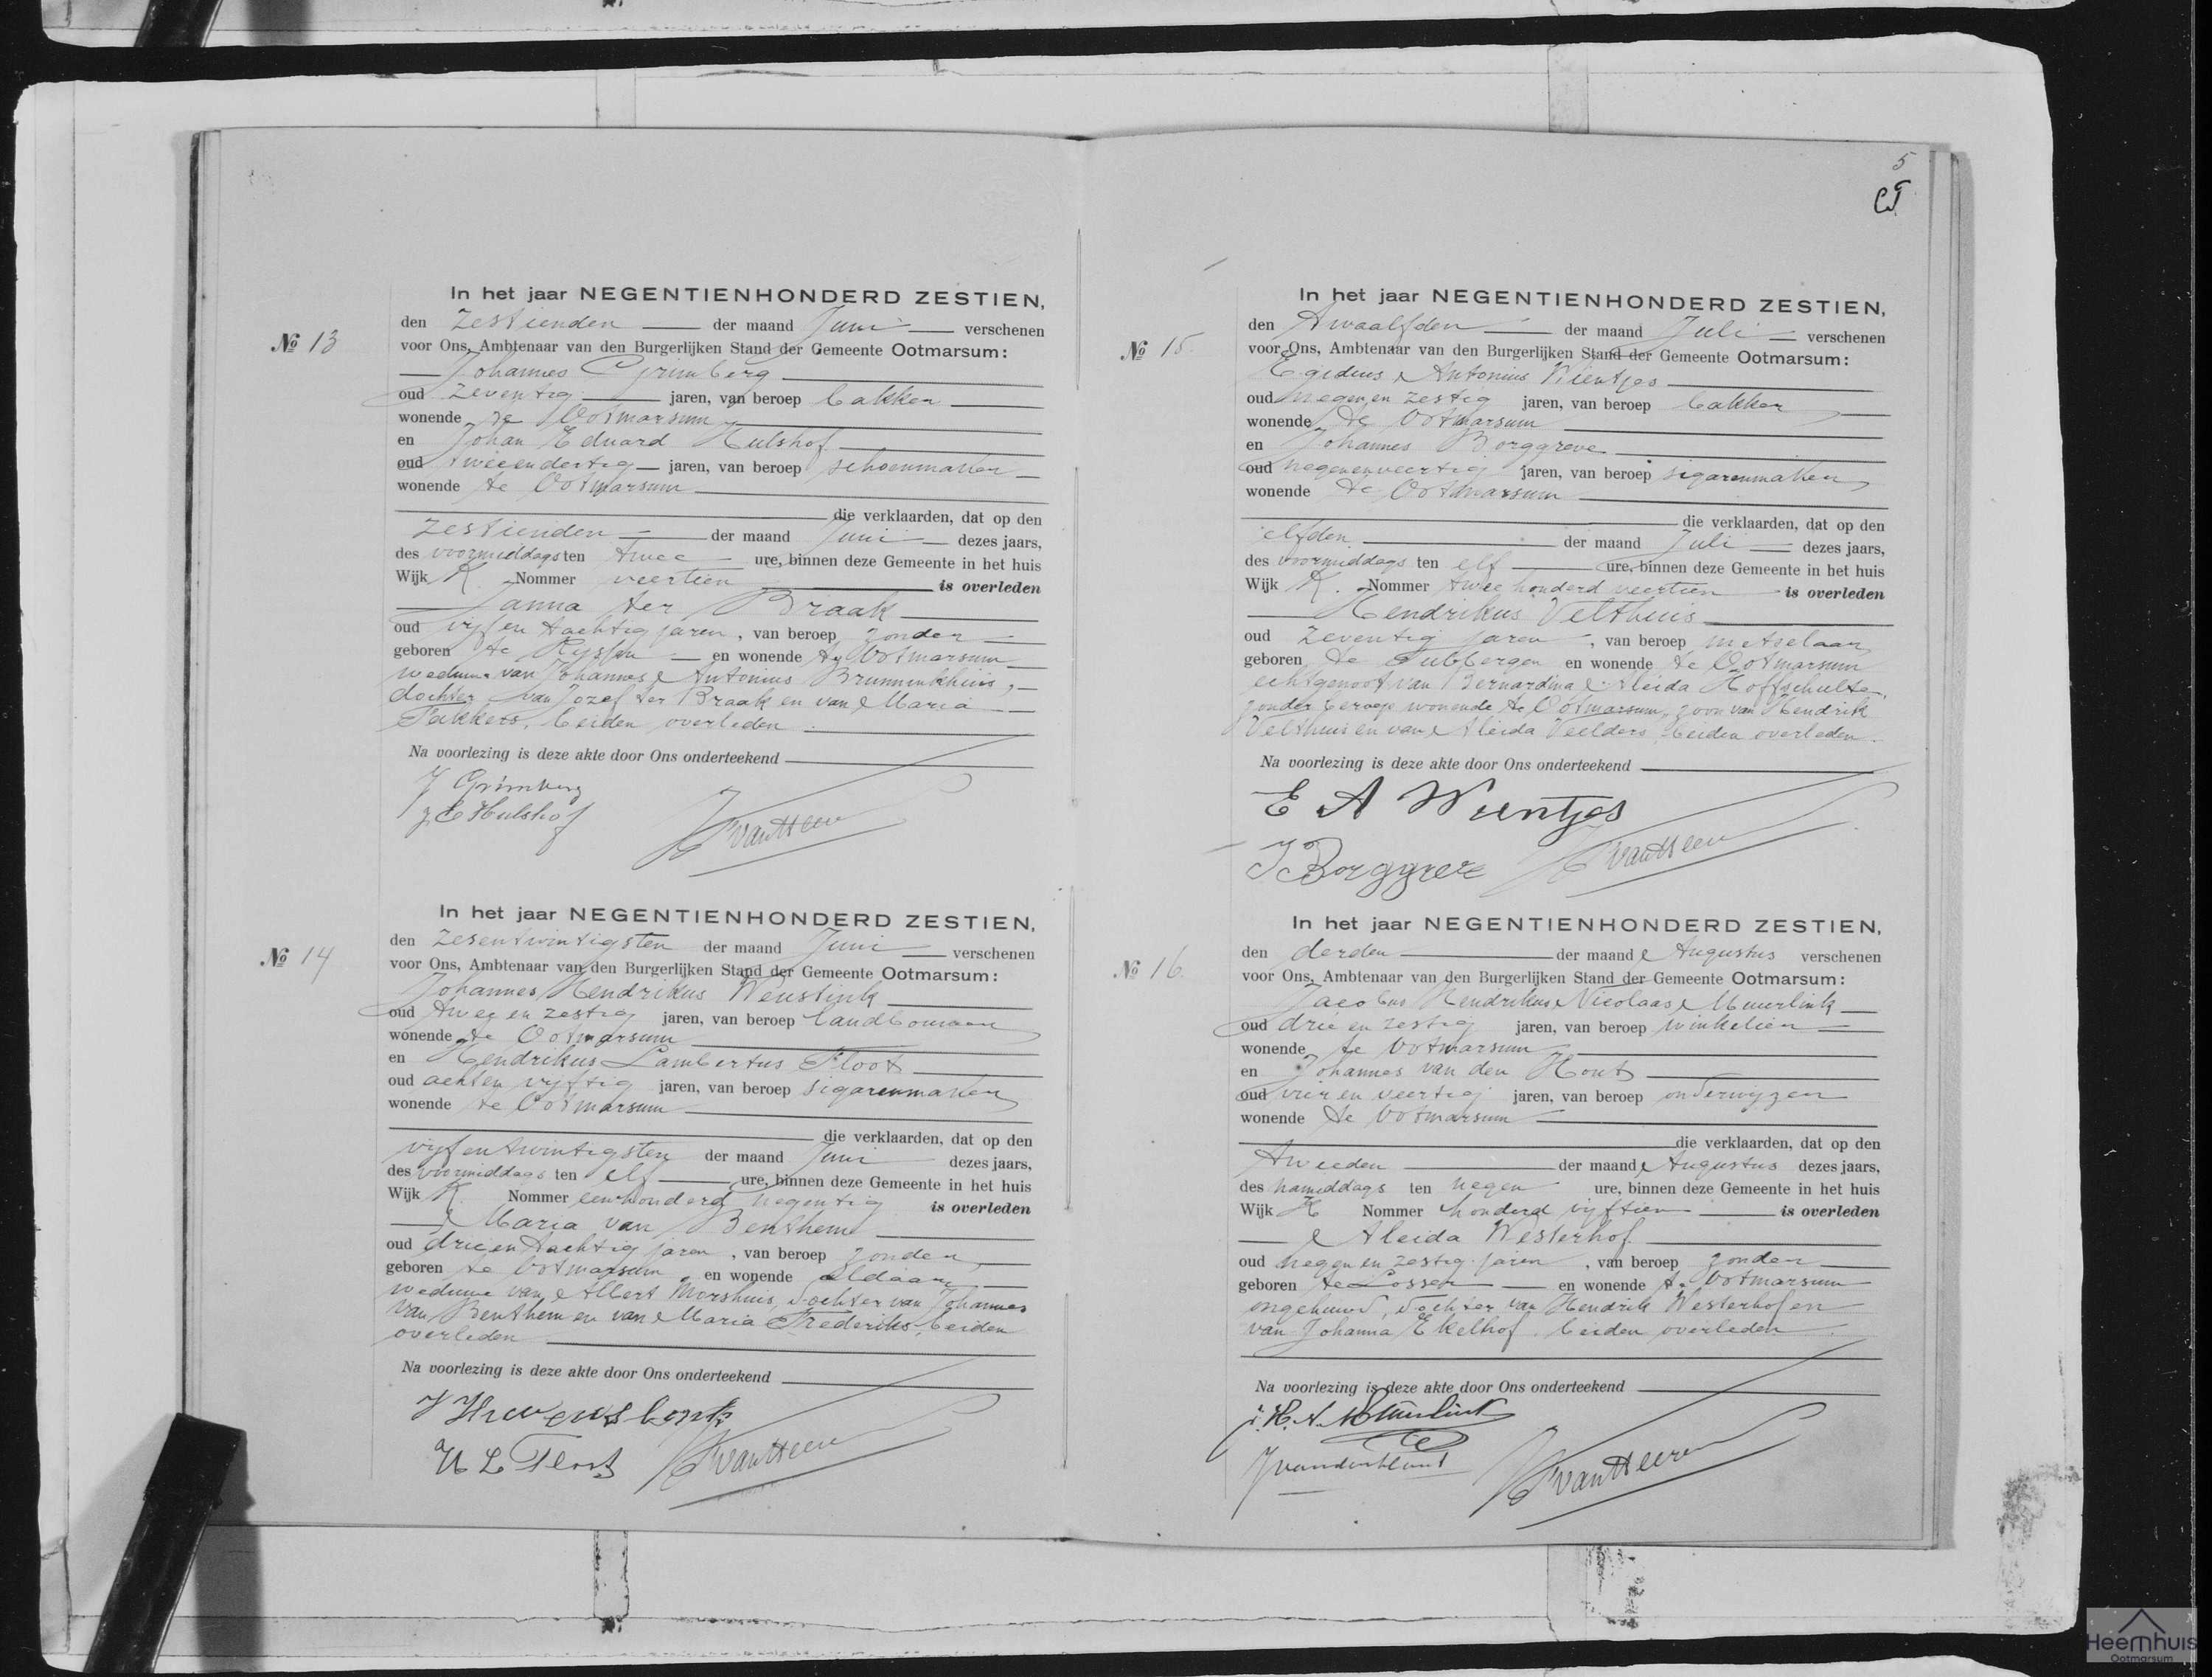 In het jaar NEGENTIENHONDERD ZESTIEN,
Nº 13
den zestienden der maand Juni verschenen
voor Ons, Ambtenaar van den Burgerlijken Stand der Gemeente Ootmarsum:
Johannes Grimberg
oud zeventig jaren, van beroep bakker
wonende te Ootmarsum
en Johan Eduard Hulshof
oud tweeendertig jaren, van beroep schoenmaker
wonende te Ootmarsum
die verklaarden, dat op den
zestienden der maand Juni dezes jaars,
des voormiddags ten twee ure, binnen deze Gemeente in het huis
Wijk K. Nommer veertien is overleden
Janna ter Braak
oud vijf en tachtig jaren, van beroep zonder
geboren te Ryssen en wonende te Ootmarsum
weduwe van Johannes Antonius Brunninkhuis,
dochter van Jozef ter Braak en van Maria
Takkers, beiden overleden.
Na voorlezing is deze akte door Ons onderteekend
J Grimberg
J E Hulshof
van Heer
In het jaar NEGENTIENHONDERD ZESTIEN,
Nº 14
den zesentwintigsten der maand Juni verschenen
voor Ons, Ambtenaar van den Burgerlijken Stand der Gemeente Ootmarsum:
Johannes Hendrikus Weustink
oud twee en zestig jaren, van beroep landbouwer
wonende te Ootmarsum
en Hendrikus Lambertus Floot
oud acht en vyftig jaren, van beroep sigarenmaker
wonende te Ootmarsum
die verklaarden, dat op den
vijfentwintigsten der maand Juni dezes jaars,
des voormiddags ten elf ure, binnen deze Gemeente in het huis
Wijk K. Nommer eenhonderd negentig is overleden
Maria van Benthem
oud drie en tachtig jaren, van beroep zonder
geboren te Ootmarsum en wonende aldaar
weduwe van Albert Morshuis, dochter van Johannes
van Benthem en van Maria Frederiks, beiden
overleden
Na voorlezing is deze akte door Ons onderteekend
H L Floot
van Heer
5
In het jaar NEGENTIENHONDERD ZESTIEN,
Nº 15.
den twaalfden der maand Juli verschenen
voor Ons, Ambtenaar van den Burgerlijken Stand der Gemeente Ootmarsum:
Egidius Antonius Wientjes
oud negen en zestig jaren, van beroep bakker
wonende te Ootmarsum
en Johannes Borggreve
oud negenenveertig jaren, van beroep sigarenmaker
wonende te Ootmarsum
die verklaarden, dat op den
elfden der maand Juli dezes jaars,
des voormiddags ten elf ure, binnen deze Gemeente in het huis
Wijk K. Nommer twee honderd veertien is overleden
Hendrikus Velthuis
oud zeventig jaren, van beroep metselaar
geboren te Tubbergen en wonende te Ootmarsum
echtgenoot van Bernardina Aleida Hoffschulte,
zonder beroep wonende te Ootmarsum, zoon van Hendrik
Velthuis en van Aleida Veelders beiden overleden.
Na voorlezing is deze akte door Ons onderteekend
E A Wientjes
J Borggreve
van Heer
In het jaar NEGENTIENHONDERD ZESTIEN,
Nº 16.
den derden der maand Augustus verschenen
voor Ons, Ambtenaar van den Burgerlijken Stand der Gemeente Ootmarsum:
Jacobus Hendrikus Nicolaas Muurlink
oud drie en zestig jaren, van beroep winkelier
wonende te Ootmarsum
en Johannes van den Hout
oud vier en veertig jaren, van beroep onderwijzer
wonende te Ootmarsum
die verklaarden, dat op den
tweeden der maand Augustus dezes jaars,
des namiddags ten negen ure, binnen deze Gemeente in het huis
Wijk K Nommer honderd vijftien is overleden
Aleida Westerhof
oud negen en zestig jaren, van beroep zonder
geboren te Losser en wonende te Ootmarsum
ongehuwd, dochter van Hendrik Westerhof en
van Johanna Ekelhof beiden overleden.
Na voorlezing is deze akte door Ons onderteekend
J. H. N. Muurlink
J van den Hout
van Heer
Heemhuis
Ootmarsum